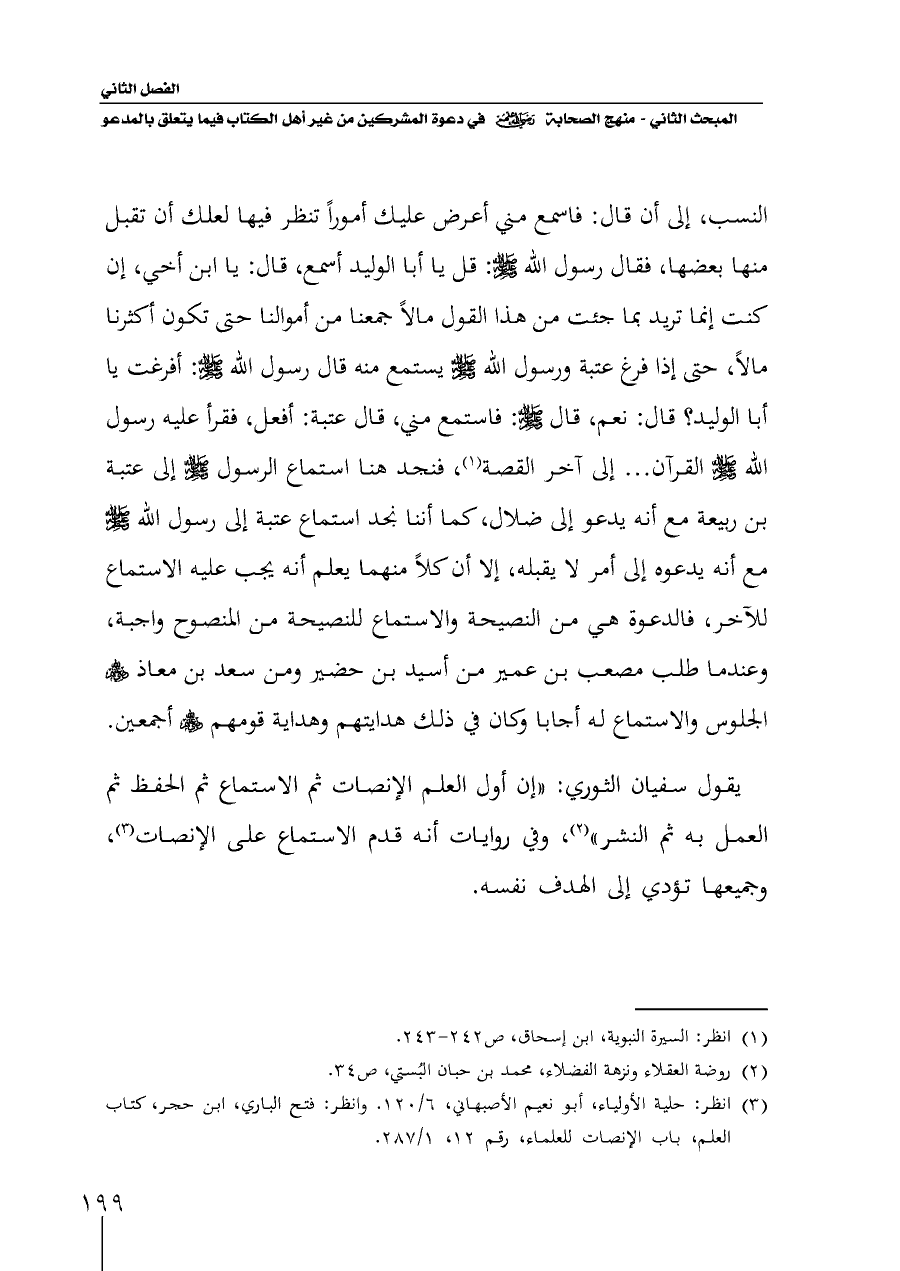 الفصل الثاني
المبحث الثاني - منهج الصحابة رضي الله عنهم في دعوة المشركين من غير أهل الكتاب فيما يتعلق بالمدعو
النسب، إلى أن قال: فاسمع مني أعرض عليك أموراً تنظر فيها لعلك أن تقبل
منها بعضها، فقال رسول الله ﷺ: قل يا أبا الوليد أسمع، قال: يا ابن أخي، إن
كنت إنما تريد بما جئت من هذا القول مالاً جمعنا من أموالنا حتى تكون أكثرنا
مالاً، حتى إذا فرغ عتبة ورسول الله ﷺ يستمع منه قال رسول الله ﷺ: أفرغت يا
أبا الوليد؟ قال: نعم، قال ﷺ: فاستمع مني، قال عتبة: أفعل، فقرأ عليه رسول
الله ﷺ القرآن... إلى آخر القصة(١)، فنجد هنا استماع الرسول ﷺ إلى عتبة
بن ربيعة مع أنه يدعو إلى ضلال، كما أننا نجد استماع عتبة إلى رسول الله ﷺ
مع أنه يدعوه إلى أمر لا يقبله، إلا أن كلاً منهما يعلم أنه يجب عليه الاستماع
للآخر، فالدعوة هي من النصيحة والاستماع للنصيحة من المنصوح واجبة،
وعندما طلب مصعب بن عمير من أسيد بن حضير ومن سعد بن معاذ ﵃
الجلوس والاستماع له أجابا وكان في ذلك هدايتهم وهداية قومهم ﵃ أجمعين.
يقول سفيان الثوري: «إن أول العلم الإنصات ثم الاستماع ثم الحفظ ثم
العمل به ثم النشر»(٢)، وفي روايات أنه قدم الاستماع على الإنصات(٣)،
وجميعها تؤدي إلى الهدف نفسه.
(١) انظر: السيرة النبوية، ابن إسحاق، ص٢٤٢-٢٤٣.
(٢) روضة العقلاء ونزهة الفضلاء، محمد بن حبان البُستي، ص٣٤.
(٣) انظر: حلية الأولياء، أبو نعيم الأصبهاني، ١٢٠/٦. وانظر: فتح الباري، ابن حجر، كتاب
العلم، باب الإنصات للعلماء، رقم ١٢، ٢٨٧/١.
١٩٩